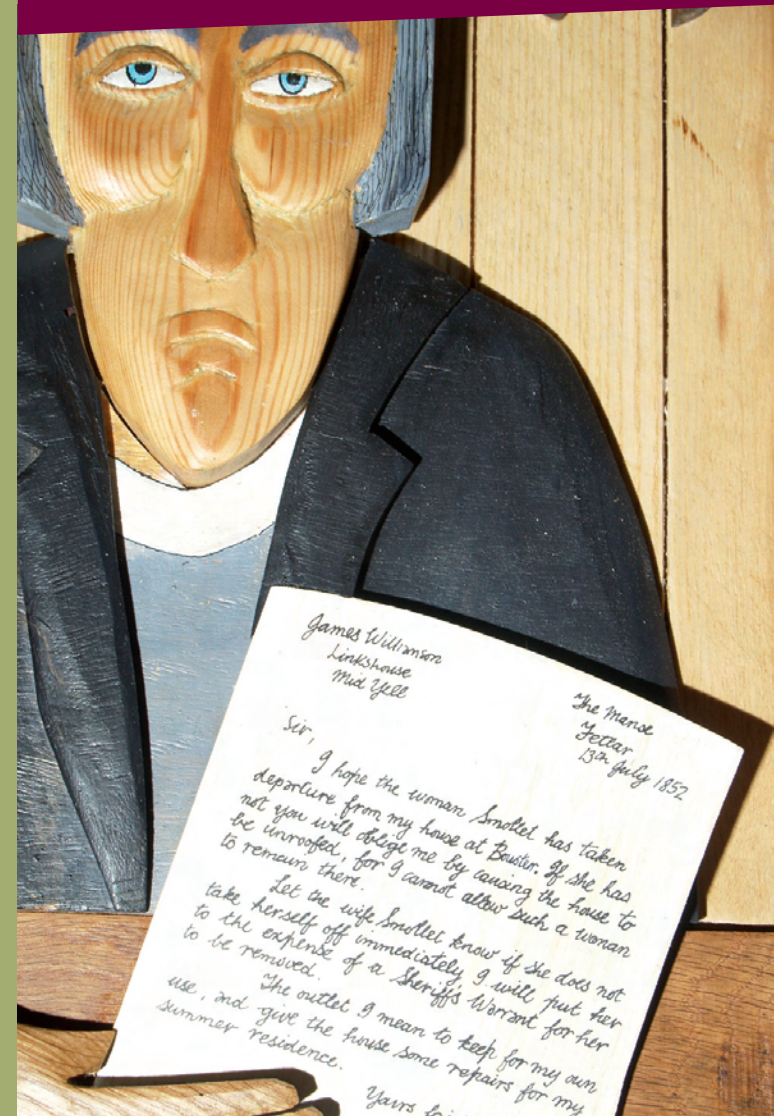 James Williamson
Linkshouse
Mid Yell
The Manse
Fetlar
13th July 1852
Sir,
I hope the woman Smollet has taken
departure from my house at Bouster. If she has
not you will oblige me by causing the house to
be unroofed, for I cannot allow such a woman
to remain there.
Let the wife Smollet know if she does not
take herself off immediately, I will put her
to the expense of a Sheriff's Warrant for her
to be removed.
The outlet I mean to keep for my own
use, and give the house some repairs for my
summer residence.
Yours